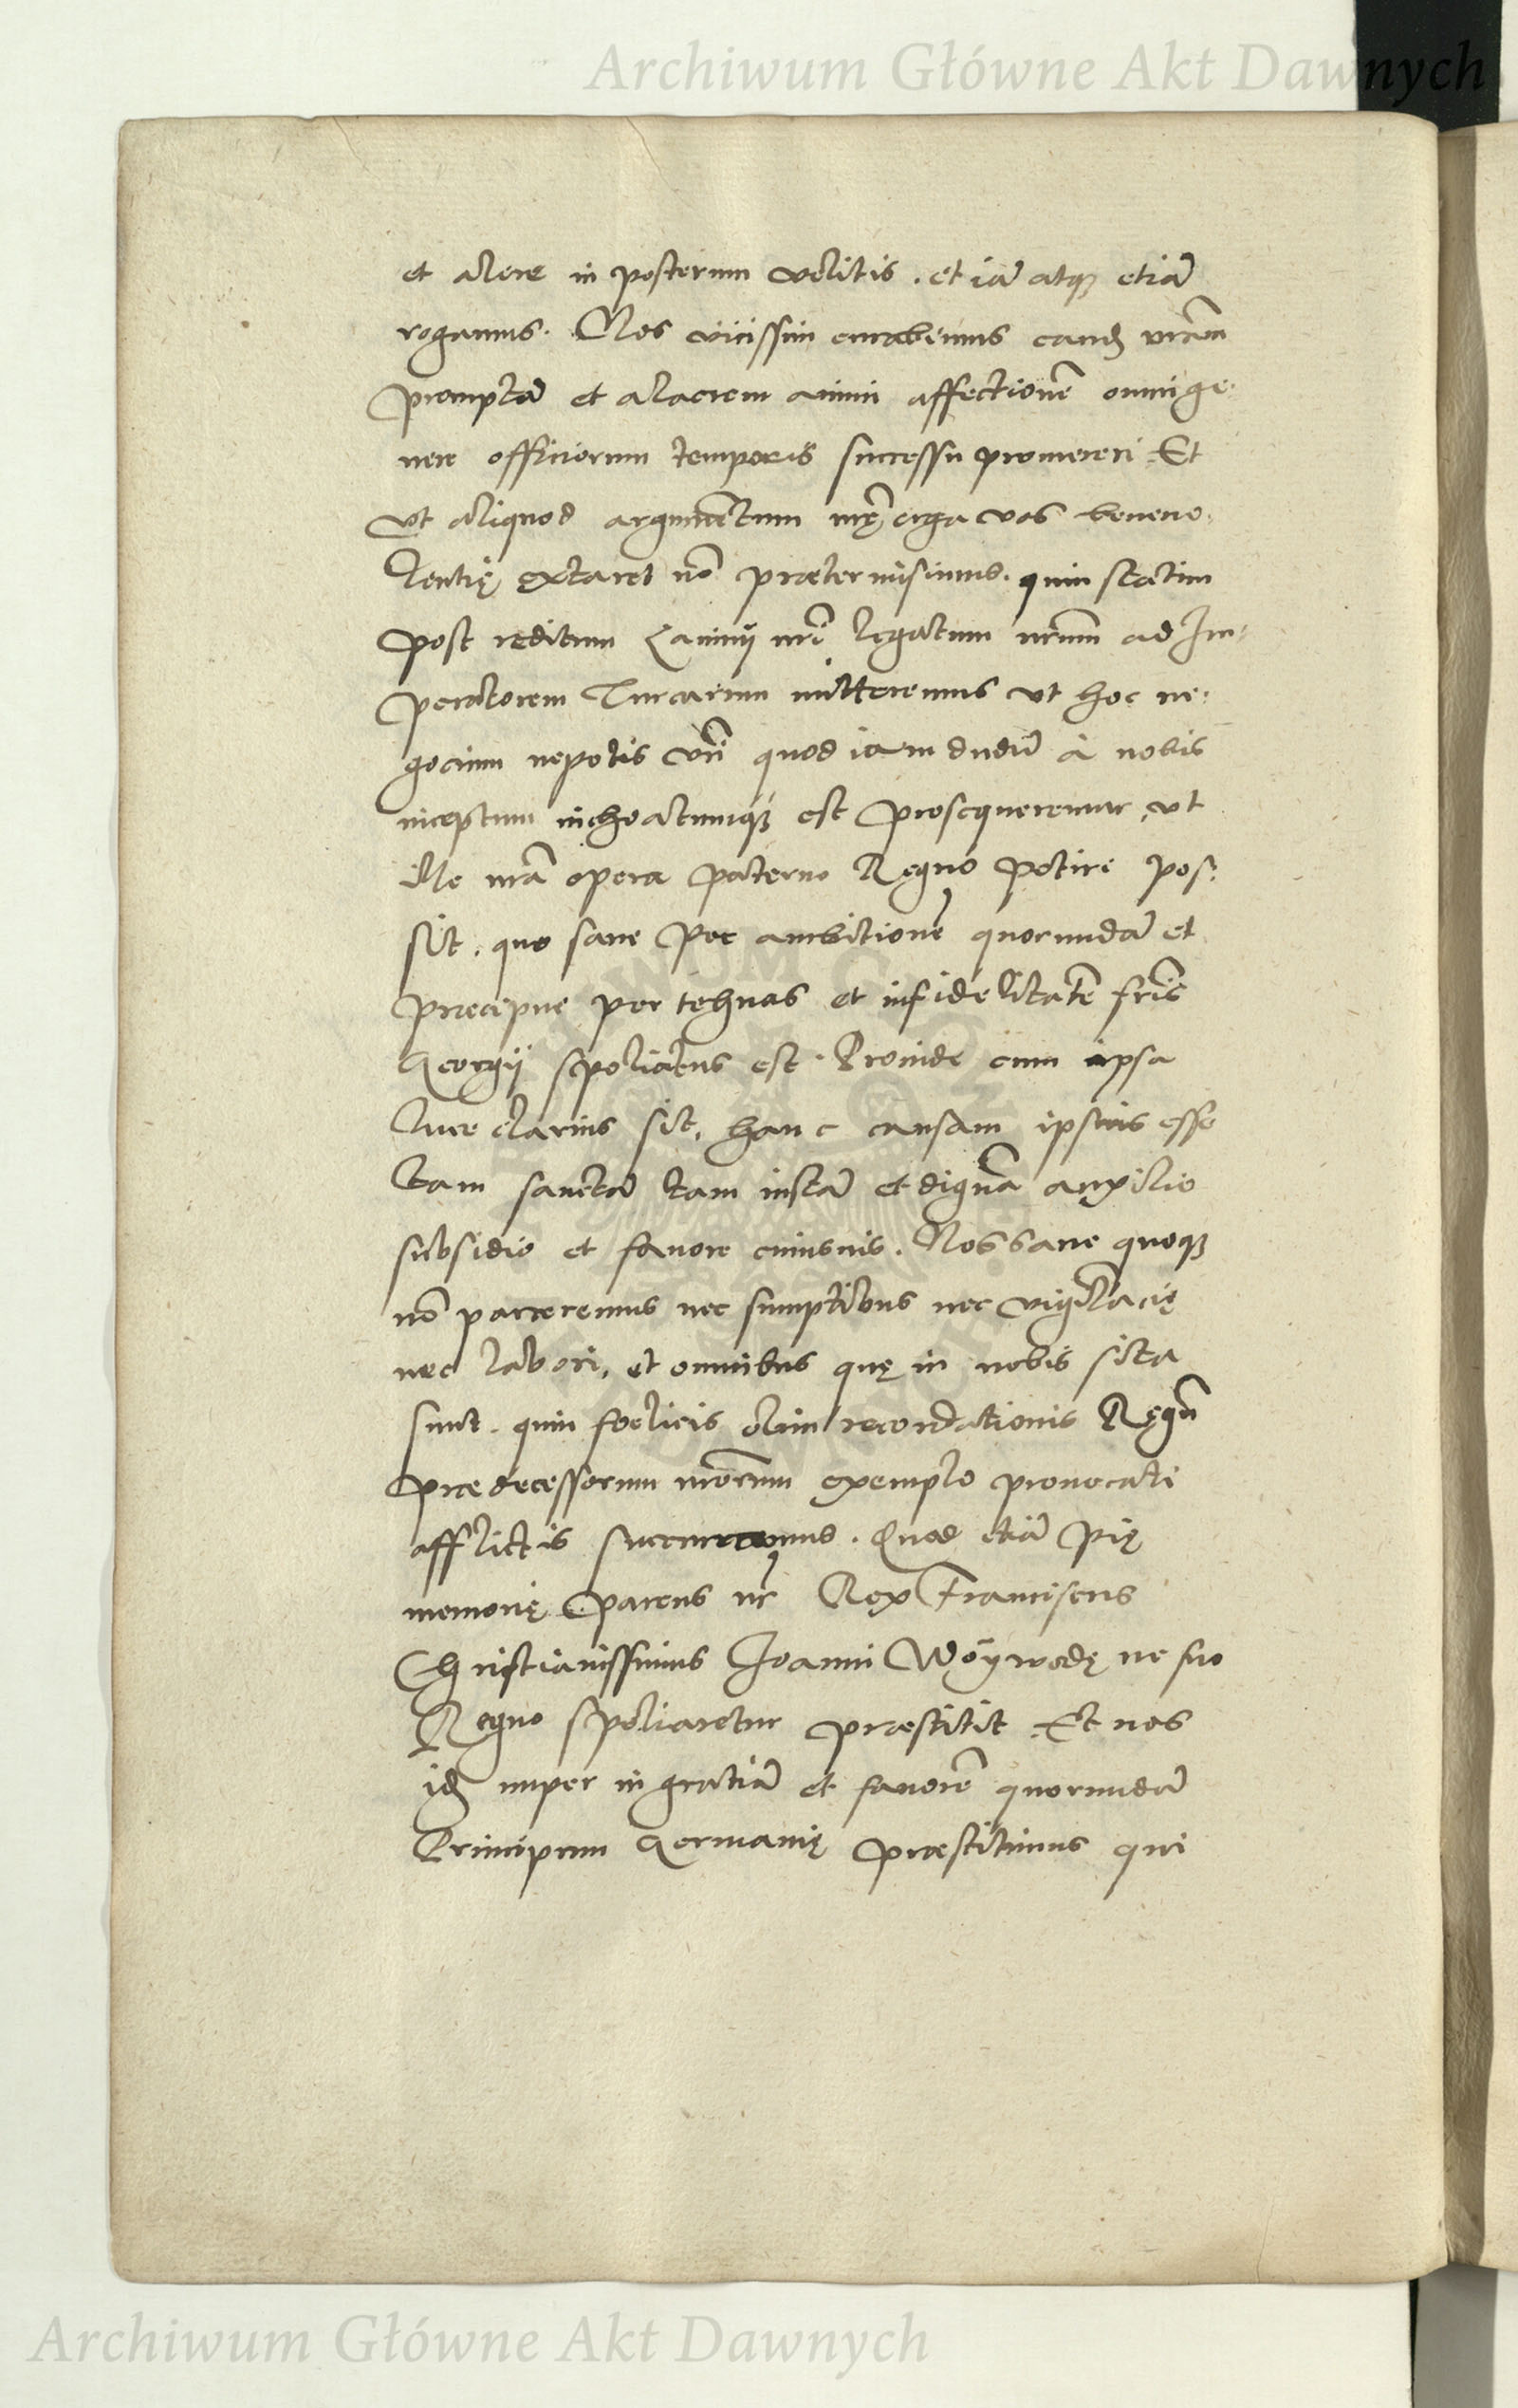 Archiwum Główne Akt Dawnych
et alere in posterum velitis. et iā atqȝ etiā
rogamus. Nos vicissim curabimus eandȝ vrām
promptā et alacrem animi affectionē omni ge-
nere officiorum temporis successu promereri. Et
vt aliquod argumētum nrę̄ erga vos beneuo-
lentię extaret nō prætermisimus. quin statim
post reditum Camny nrī legatum nrūm ad Im-
peratorem Turcarum mitteremus vt hoc ne-
gocium nepotis vrī quod iam dudū à nobis
inceptum inchoatumqȝ est prosequeremur, vt
ille nrā opera paterno Regno potire pos-
sit. quo sane per ambitionē quorundā et
præcipue per tehnas et infidelitatē fris̄
Georgij spoliatus est. Proinde cum ipsa
luce clarius sit, hanc causam ipsius esse
tam sanctā tam iustā et dignā auxilio
subsidio et fauore cuiusuis. Nos sane quoqȝ
nō parceremus nec sumptibus nec vigilācię
nec labori, et omnibus quę in nobis sita
sunt. quin foelicis olim recordationis Regū
prædecessorum nrorūm exemplo prouocati
afflictis succurramus. Quod etiā pię
memorię parens nr̄ Rex Franciscus
Christianissimus Joanni Woÿwodę ne suo
Regno spoliaretur præstitit. Et nos
idȝ nuper in gratiā et fauorē quorundā
Principum Germanię præstitimus qui
Archiwum Główne Akt Dawnych